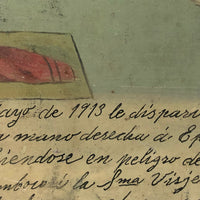 ayo de 1913 le dispar
a mano derecha á Ep
iendose en peligro de
mboco á la Sma Virje